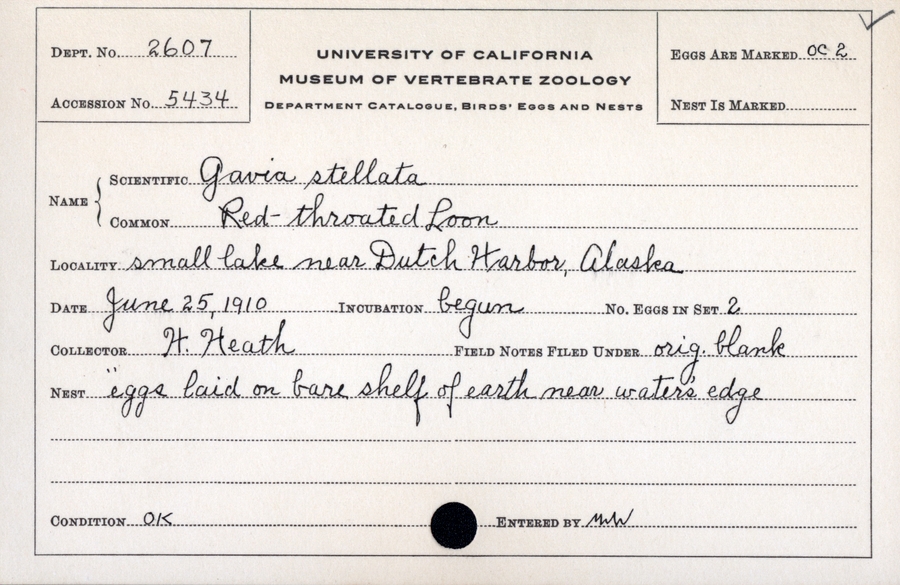 DEPT. No. 2607
ACCESSION No. 5434
UNIVERSITY OF CALIFORNIA
MUSEUM OF VERTEBRATE ZOOLOGY
DEPARTMENT CATALOGUE, BIRDS' EGGS AND NESTS
EGGS ARE MARKED OC 2
NEST IS MARKED
NAME
SCIENTIFIC Gavia stellata
COMMON Red-throated Loon
LOCALITY small lake near Dutch Harbor, Alaska
DATE June 25, 1910 INCUBATION begun NO. EGGS IN SET 2
COLLECTOR H. Heath FIELD NOTES FILED UNDER orig. blank
NEST "eggs laid on bare shelf of earth near water's edge
CONDITION OK ENTERED BY